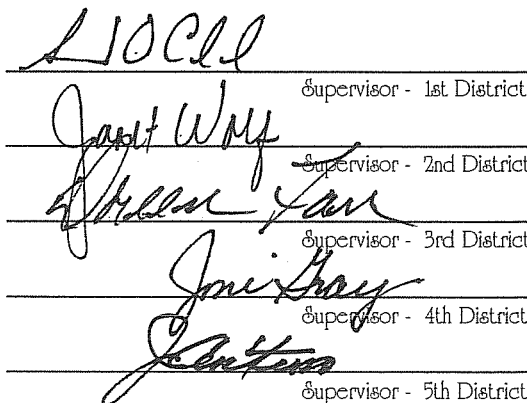 Supervisor - 1st District
Janet Wolf
Supervisor - 2nd District
Doreen Farr
Supervisor - 3rd District
Joni Gray
Supervisor - 4th District
Supervisor - 5th District